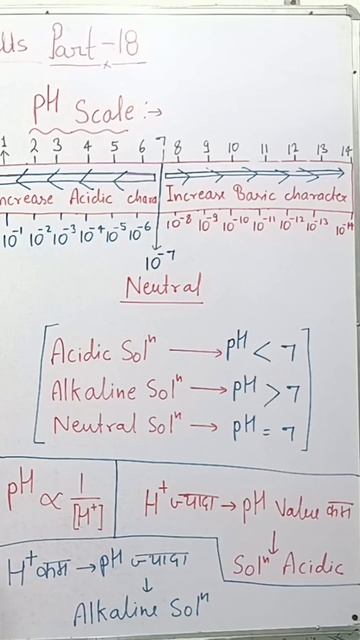 Part-18
pH Scale :→
1 2 3 4 5 6 7 8 9 10 11 12 13 14
ncrease Acidic chara Increase Basic character
10⁻¹ 10⁻² 10⁻³ 10⁻⁴ 10⁻⁵ 10⁻⁶ 10⁻⁸ 10⁻⁹ 10⁻¹⁰ 10⁻¹¹ 10⁻¹² 10⁻¹³ 10⁻¹⁴
10⁻⁷
Neutral
Acidic Solⁿ → pH < 7
Alkaline Solⁿ → pH > 7
Neutral Solⁿ → pH = 7
pH ∝ 1/[H⁺]
H⁺ ज्यादा → pH Value कम
↓
Solⁿ Acidic
H⁺ कम → pH ज्यादा
↓
Alkaline Solⁿ